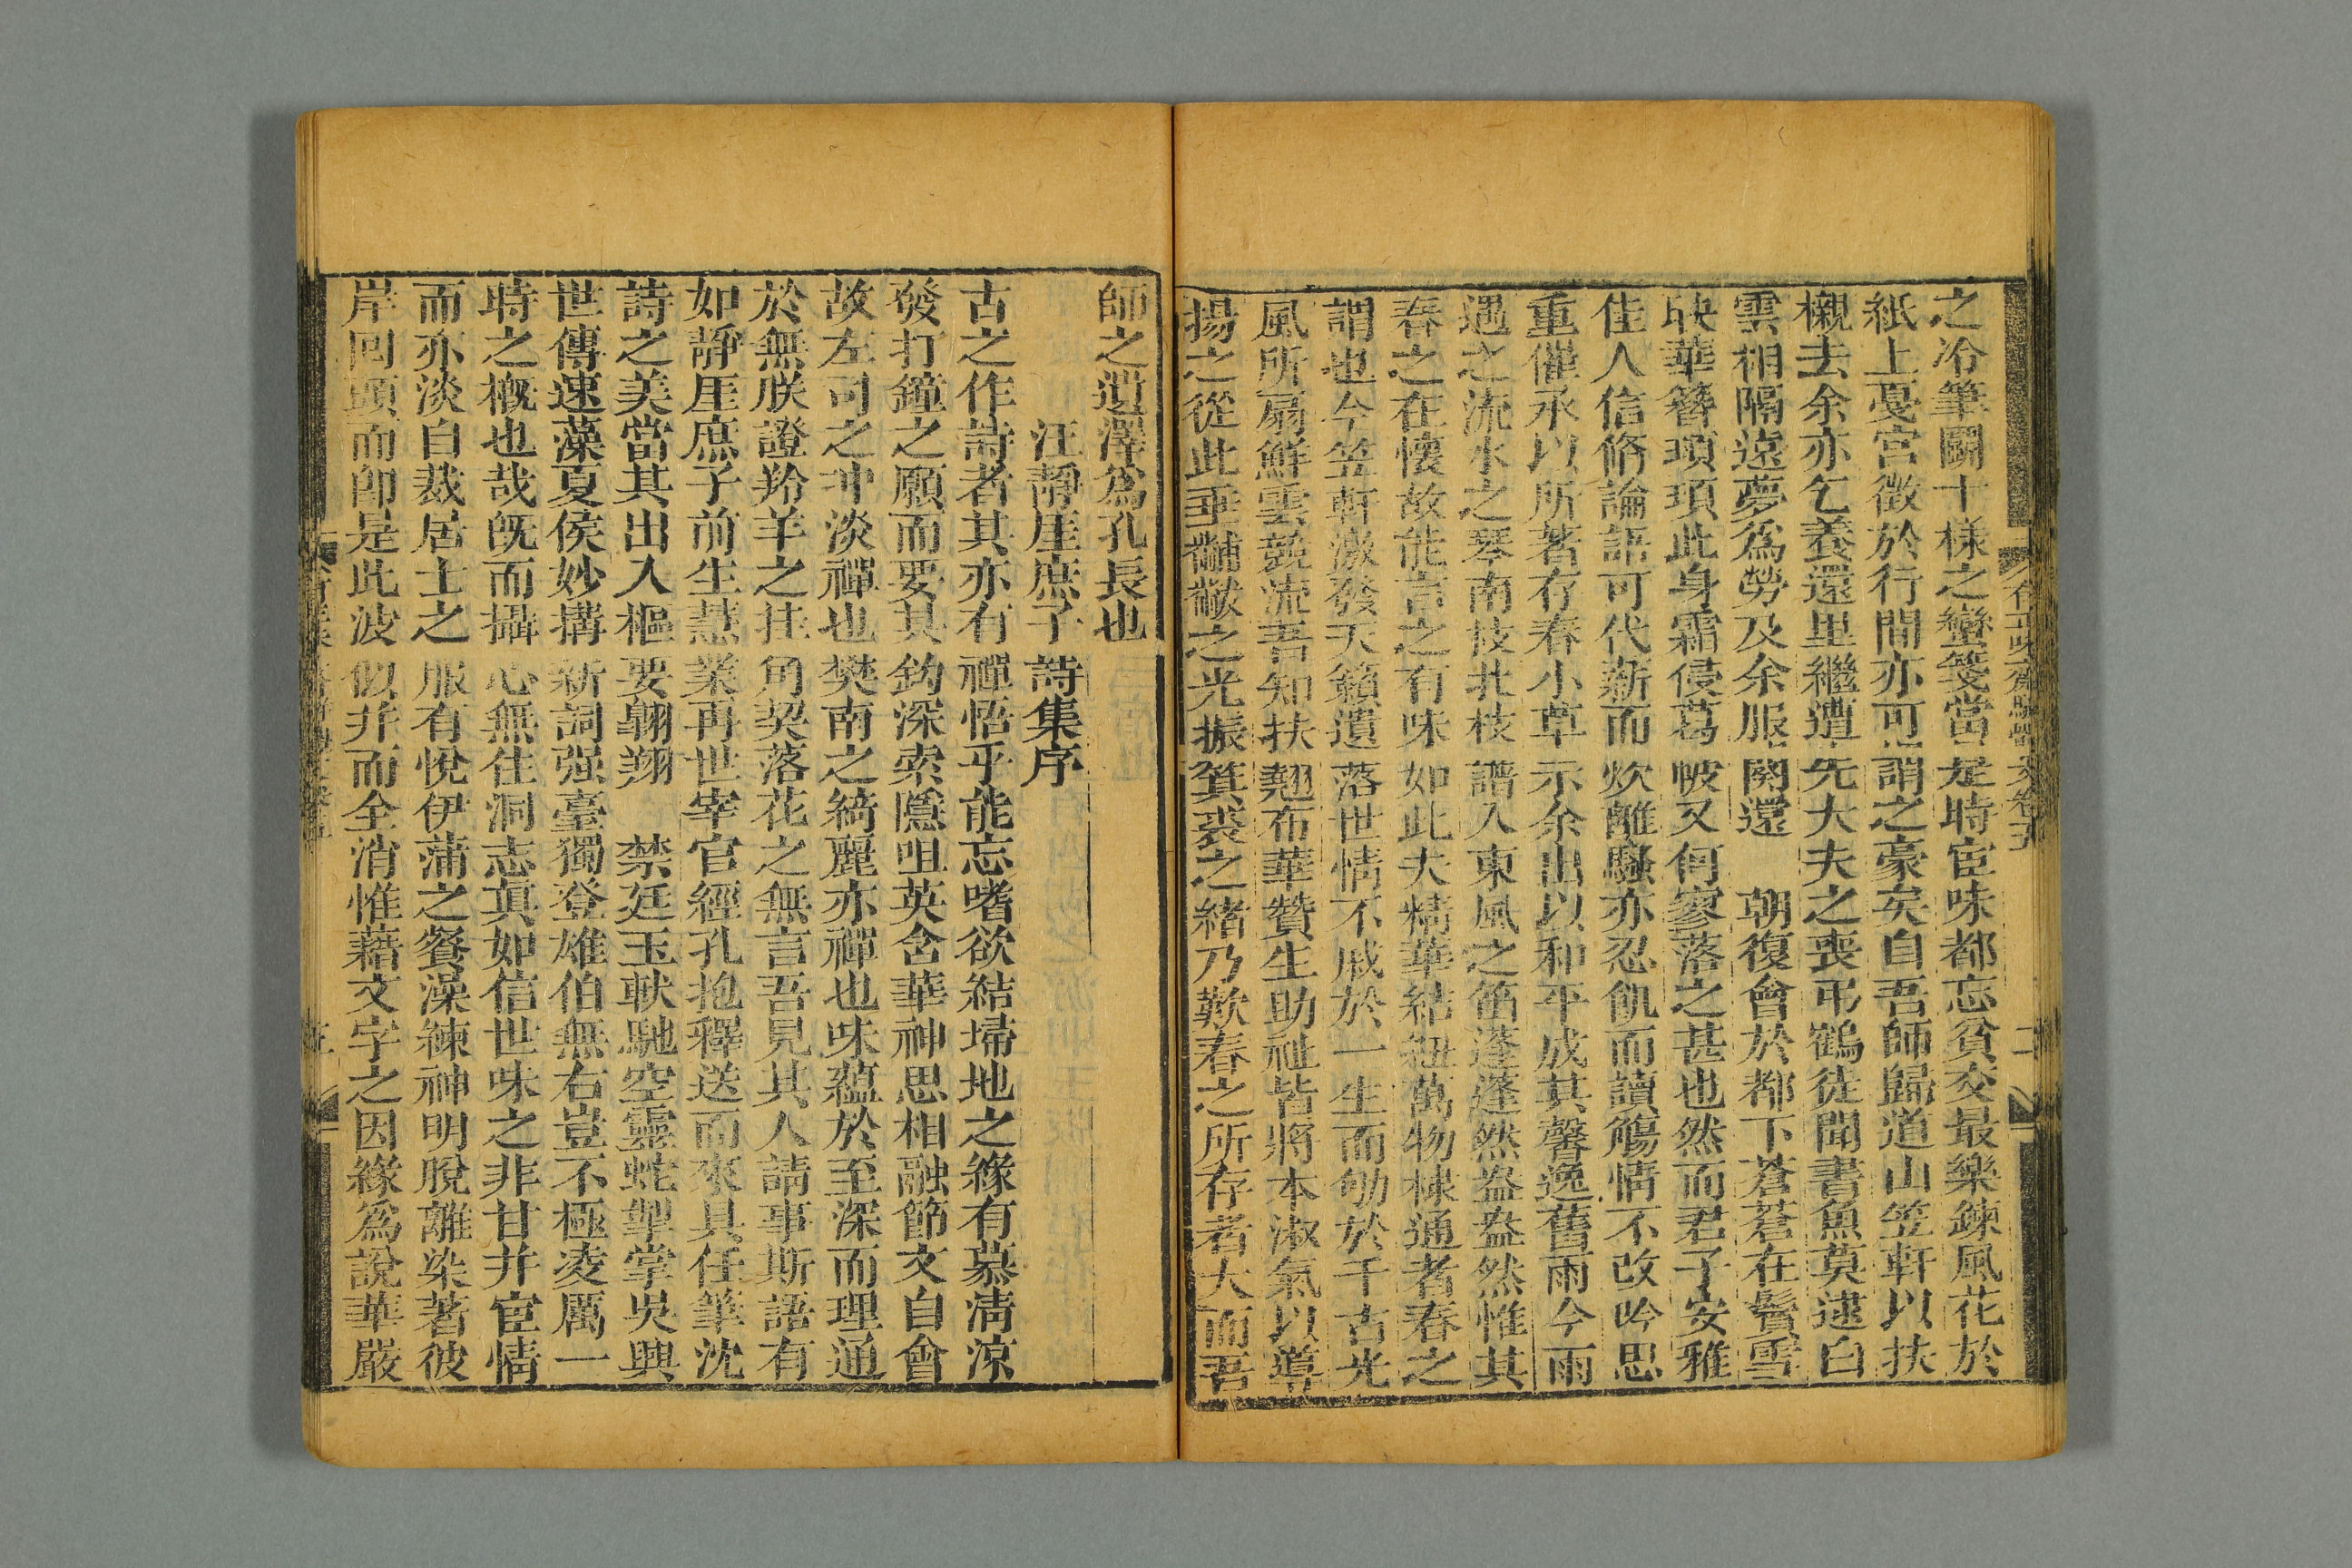 之冷筆鬬十樣之蠻箋當是時宦味都忘貧交最樂鍊風花於
紙上戞宮徵於行間亦可謂之豪矣自吾師歸道山笠軒以扶
櫬去余亦乞養還里繼遭先大夫之喪弔鶴徒聞書魚莫逮白
雲相隔遠夢爲勞及余服闋還 朝復會於都下蒼蒼在鬢雪
映華簪瑣瑣此身霜侵葛帔又何寥落之甚也然而君子安雅
佳人信脩論語可代薪而炊離騷亦忍飢而讀觴情不改吟思
重催承以所著存春小草示余出以和平成其馨逸舊雨今雨
遇之流水之琴南枝北枝譜入東風之笛蓬蓬然盎盎然惟其
春之在懷故能言之有味如此夫精華結紐萬物棣通者春之
謂也今笠軒激發天籟遺落世情不戚於一生而劬於千古光
風所扇鮮雲競流吾知扶翹布華贊生助祉皆將本淑氣以導
揚之從此垂黼黻之光振箕裘之緒乃歎春之所存者大而吾
師之遺澤爲孔長也
汪靜厓庶子詩集序
古之作詩者其亦有禪悟乎能忘嗜欲結埽地之緣有慕淸涼
發打鐘之願而要其鈎深索隱咀英含華神思相融節文自會
故左司之沖淡禪也樊南之綺麗亦禪也味蘊於至深而理通
於無朕證羚羊之挂角契落花之無言吾見其人請事斯語有
如靜厓庶子前生慧業再世宰官經孔抱釋送而來具任筆沈
詩之美當其出入樞要翺翔 禁廷玉軑馳空靈蛇掣掌吳興
世傳速藻夏侯妙搆新詞强臺獨登雄伯無右豈不極凌厲一
時之槪也哉旣而攝心無住洞志眞如信世味之非甘并宦情
而亦淡白裁居士之服有悅伊蒲之餐澡練神明脫離染著彼
岸回頭而卽是此波似井而全消惟藉文字之因緣爲說華嚴